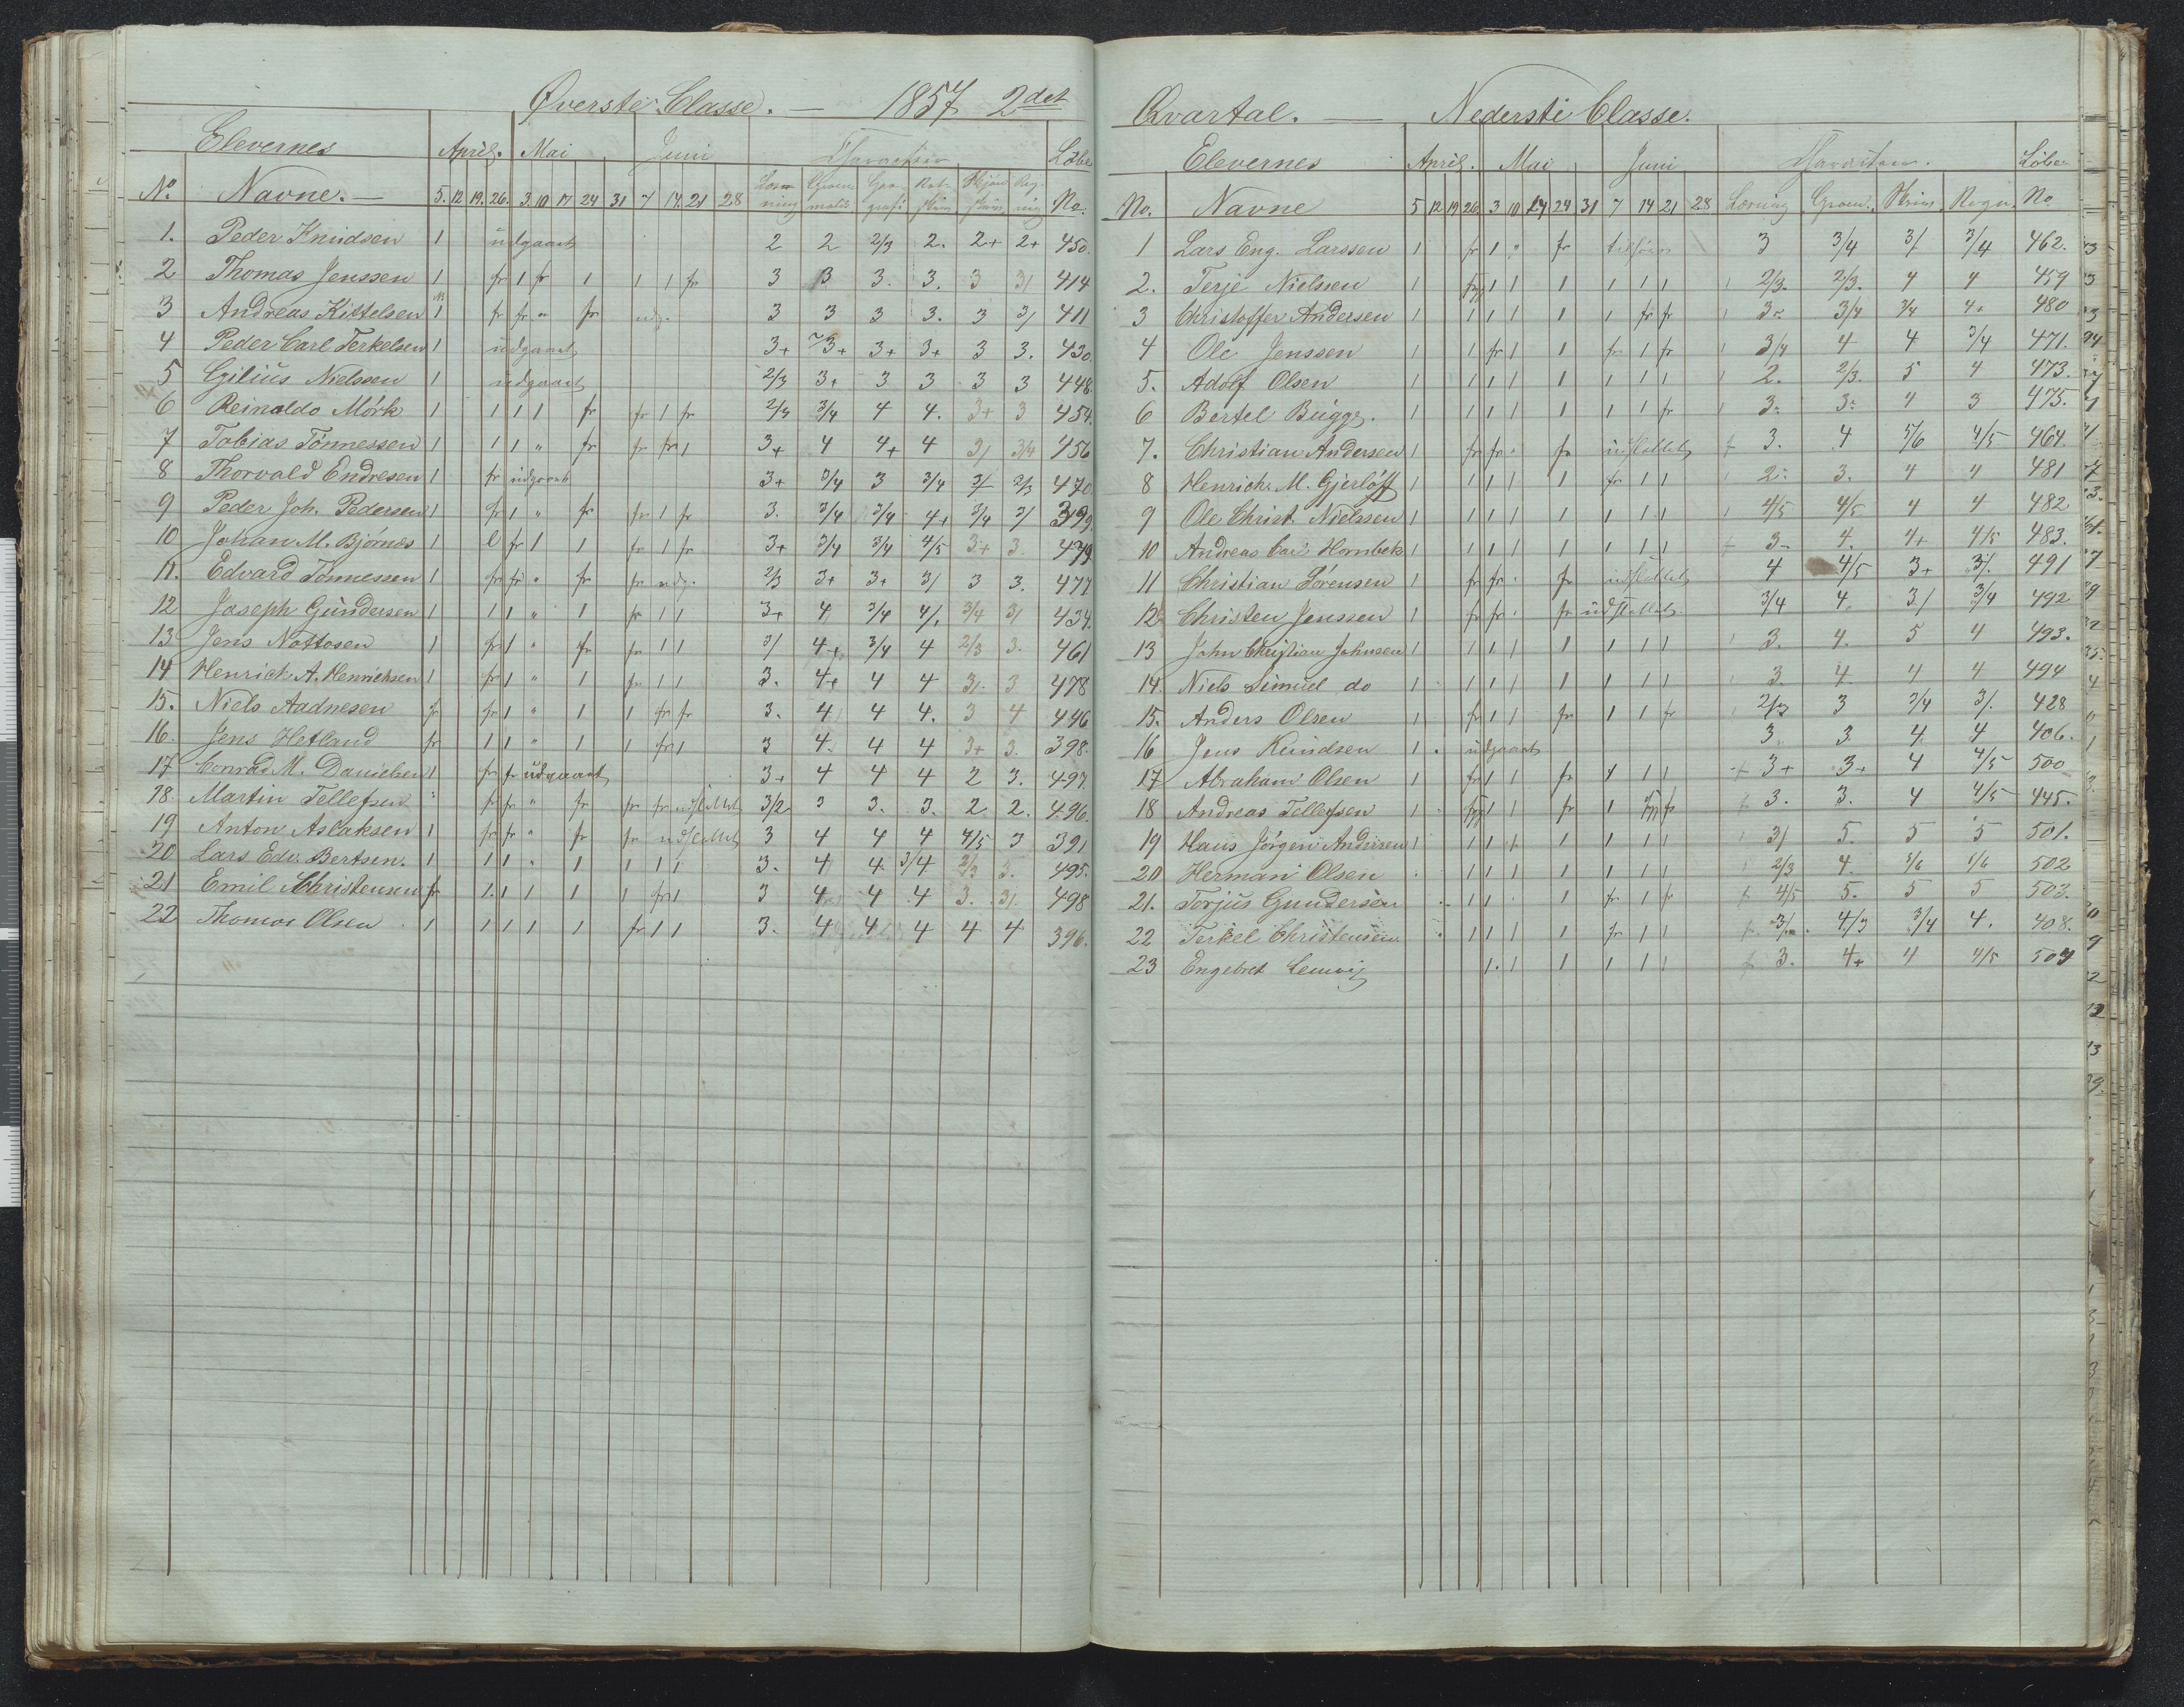 Øverste Classe. — 1857 2det
Elevernes April. Mai Juni Løbe
No. Navne. — 5. 12 19. 26. 3. 10 17 24 31 7 14. 21 28 Læsning No.
1. Peder Knudsen 1 udgaaet 2 2 2/3 2. 2+ 2+ 450.
2 Thomas Jenssen 1 fr 1 fr 1 1 1 fr 3 3 3. 3. 3 3/ 414
3 Andreas Kittelsen 1 fr fr " fr udg. 3 3 3 3. 3 3/ 411
4 Peder Carl Terkelsen 1 udgaaet 3+ 3+ 3+ 3+ 3 3. 430.
5 Gilius Nielssen 1 udgaaet 2/3 3+ 3 3 3 3 448
6 Reinoldo Mörk 1 1 1 1 fr fr 1 fr 3/4 4 4. 3+ 3 454.
7 Tobias Tönnessen 1 1 1 " fr fr fr 1 3+ 4 4+ 4 3/ 3/4 456
8 Thorvald Endresen 1 fr udgaaet 3+ 3/4 3 3/4 3/ 2/3 470.
9 Peder Joh. Pedersen 1 fr 1 " fr fr 1 fr 3. 3/4 3/4 4+ 3/4 3/ 399.
10 Johan M. Björnæs 1 fr 1 1 fr 1 fr 3+ 3/4 3/4 4/5 3+ 3. 479
11. Edvard Tönnessen 1 fr fr " fr fr udg. 2/3 3+ 3+ 3/ 3 3. 477
12 Joseph Gundersen 1 1 1 " 1 fr 1 1 3+ 4 3/4 4/. 3/4 3/ 434.
13 Jens Nottosen 1 fr 1 " fr fr 1 1 3/ 4+ 3/4 4 2/3 3. 461
14 Henrick A. Henrichsen 1 fr 1 " 1 fr 1 1 3. 4+ 4 4 3/. 3 478
15. Niels Aadnesen fr fr 1 " 1 1 fr fr 3. 4 4 4. 3 4 446
16. Jens Hetland fr 1 1 " 1 1 fr 1 3 4. 4 4 3+ 3. 398.
17 Conrad M. Danielsen 1 fr fr udgaaet 3+ 4 4 4 2 3. 497.
18. Martin Tellefsen " fr fr " fr fr fr udslettet 3/2 3 3. 3. 2 2. 496.
19 Anton Aslaksen 1 fr fr " fr fr udslettet 3 4 4 4 4/5 3 391
20 Lars Edv. Bertsen. 1 1 1 " 1 1 1 1 3. 4 4 3/4 2/3 3. 495.
21 Emil Christensen fr 1. 1 1 1 1 fr 1 3 4 4 4 3. 3/. 498
22 Thomas Olsen 1 1 1 1 1 fr 1 1 3. 4 4 4 4 4 396.
Qvartal. — Nederste Classe.
Elevernes April. Mai Juni Løbe
No. Navne 5 12 19 26 3 10 17 24 31 7 14 21 28 Læsning Skriv. Regn. No
1 Lars Eng. Larssen 1 fr 1 " fr 3 3/4 3/ 3/4 462.
2. Terje Nielssen 1 1 1 1 1 1 1 2/3. 2/3. 4 4 459
3 Christoffer Andersen 1 1 1 1 1 1 fr fr 3/4 3/4 4+ 480
4 Ole Jenssen 1 1 fr 1 1 fr 1 fr 3/4 4 4 3/4 471.
5. Adolf Olsen 1 1 1 1 1 1 1 1 2. 2/3. 5 4 473.
6 Bertel Bugge. 1 1 1 1 1 1 1 fr 3. 3. 4 3 475.
7. Christian Andersen 1 fr fr " fr udslettet 3. 4 5/6 4/5 464.
8 Henrich. M. Gjerlöff 1 1 1 1 1 fr 1 1 2. 3. 4 4 481
9 Ole Christ. Nielssen 1 1 1 1 1 1 1 1 4/5 4/5 4 4 482
10 Andreas Hornbek 1 1 1 1 1 1 1 1 3. 4. 4+ 4/5 483.
11 Christian Sörensen 1 fr fr " fr udslettet 4 4/5 3+ 3/. 491
12 Christen Jenssen 1 fr fr " fr udslettet 3/4 4. 3/ 3/4 492
13 John Christian Johnsen 1 1 1 1 1 1 1 1 3. 4. 5 4 493.
14. Niels Simuel do 1 1 1 1 1 1 1 1 3 4 4 4 494
15. Anders Olsen 1 fr 1 1 fr 1 1 fr 2/3 3 3/4 3/. 428
16 Jens Knudsen 1 udgaaet 3. 3 4 4 406.
17 Abraham Olsen 1 fr 1 1 fr 1 1 1 3+ 3+ 4 4/5 500
18 Andreas Tellefsen 1 1 1 fr 1 fr 3. 3. 4 4/5 445.
19 Hans Jörgen Andersen 1 1 1 1 1 1 1 1 3/ 5. 5 5 501.
20 Herman Olsen 1 1 1 1 1 1 1 2/3 4. 502
21. Torjus Gundersen 1 1 1 fr 1 fr 4/5 5. 5 5 503.
22 Terkel Christensen 1 1 1 1 fr 1 1 3/. 4/3 3/4 4. 408.
23 Engebret Lemvig 1. 1 1 1 1 1 3. 4+ 4 4/5 504